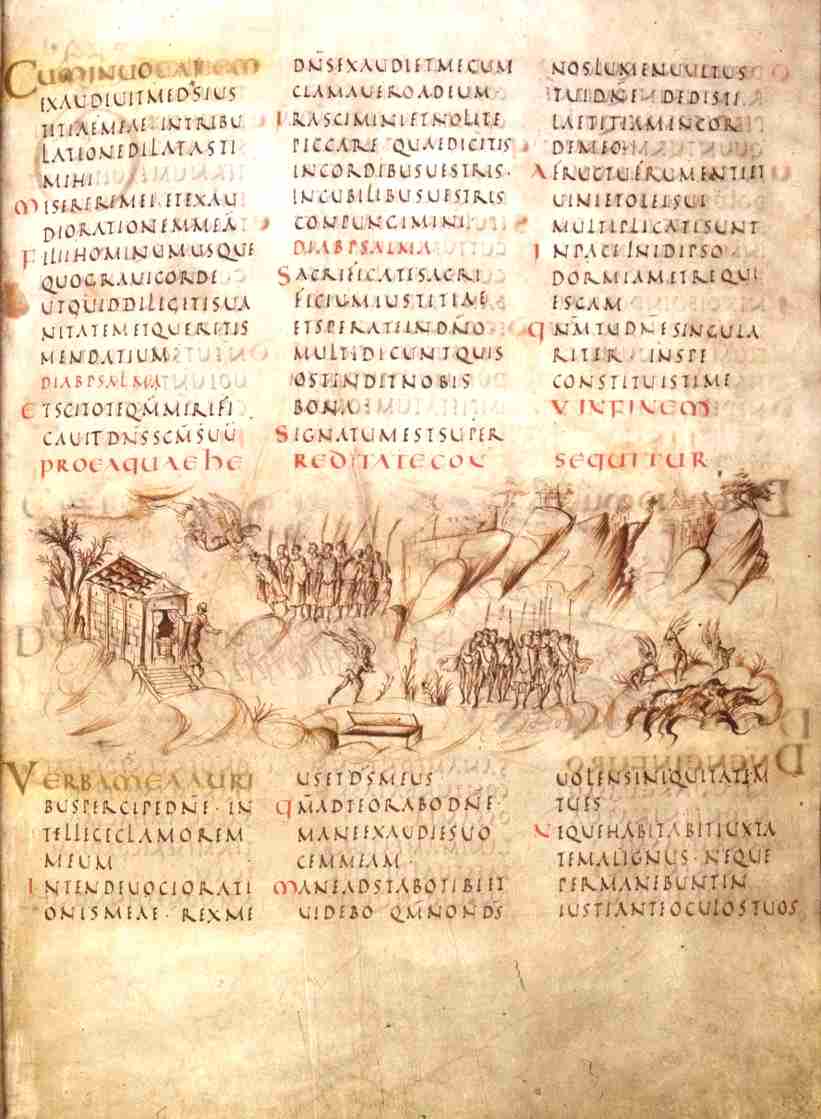 CUMINUOCAREM
EXAUDIUITMEDS̄IUS
TITIAEMEAE·INTRIBU
LATIONEDILATASTI
MIHI
MISEREREMEI·ETEXAU
DIORATIONEMMEĀ
FILIIHOMINUMUSQUE
QUOGRAUICORDE
UTQUIDDILIGITISUA
NITATEMETQUERITIS
MENDATIUM
DIABPSALMA
ETSCITOTEQM̄MIRIFI
CAUITDN̄SSCM̄SUŪ
DN̄SEXAUDIETMECUM
CLAMAUEROADEUM
IRASCIMINIETNOLITE
PECCARE·QUAEDICITIS
INCORDIBUSUESTRIS·
INCUBILIBUSUESTRIS
CONPUNGIMINI
DIABPSALMA
SACRIFICATESACRI
FICIUMIUSTITIAE
ETSPERATEINDN̄O
MULTIDICUNTQUIS
OSTENDITNOBIS
BONA
SIGNATUMESTSUPER
NOSLUMENUULTUS
TUIDN̄E·DEDISTI
LAETITIAMINCOR
DEMEO
AFRUCTUFRUMENTIET
UINIETOLEISUI
MULTIPLICATISUNT
INPACEINIDIPSO
DORMIAMETREQUI
ESCAM
QNM̄TUDN̄ESINGULA
RITER·INSPE
CONSTITUISTIME
VINFINEM
PROEAQUAEHE REDITATECON SEQUITUR
VERBAMEAAURI
BUSPERCIPEDN̄E·IN
TELLEGECLAMOREM
MEUM
INTENDEUOCIORATI
ONISMEAE·REXME
USETDS̄MEUS
QM̄ADTEORABODN̄E·
MANEEXAUDIESUO
CEMMEAM·
MANEADSTABOTIBIET
UIDEBO QM̄NONDS̄
UOLENSINIQUITATEM
TUES
NEQUEHABITABITIUXTA
TEMALIGNUS·NEQUE
PERMANEBUNTIN
IUSTIANTEOCULOSTUOS